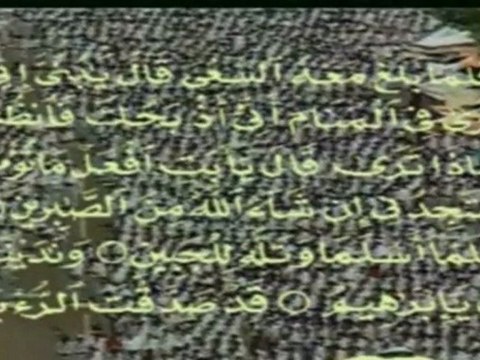 فلما بلغ معه السعى قال يبنى إ
فى المنام أنى أذبحك فانظ
ماذا ترى قال يا بت افعل ما تؤم
ستجدنى إن شاء الله من الصبرين
فلما أسلما وتله للجبين ۝ وندين
يا برهيم ۝ قد صدقت الرءي